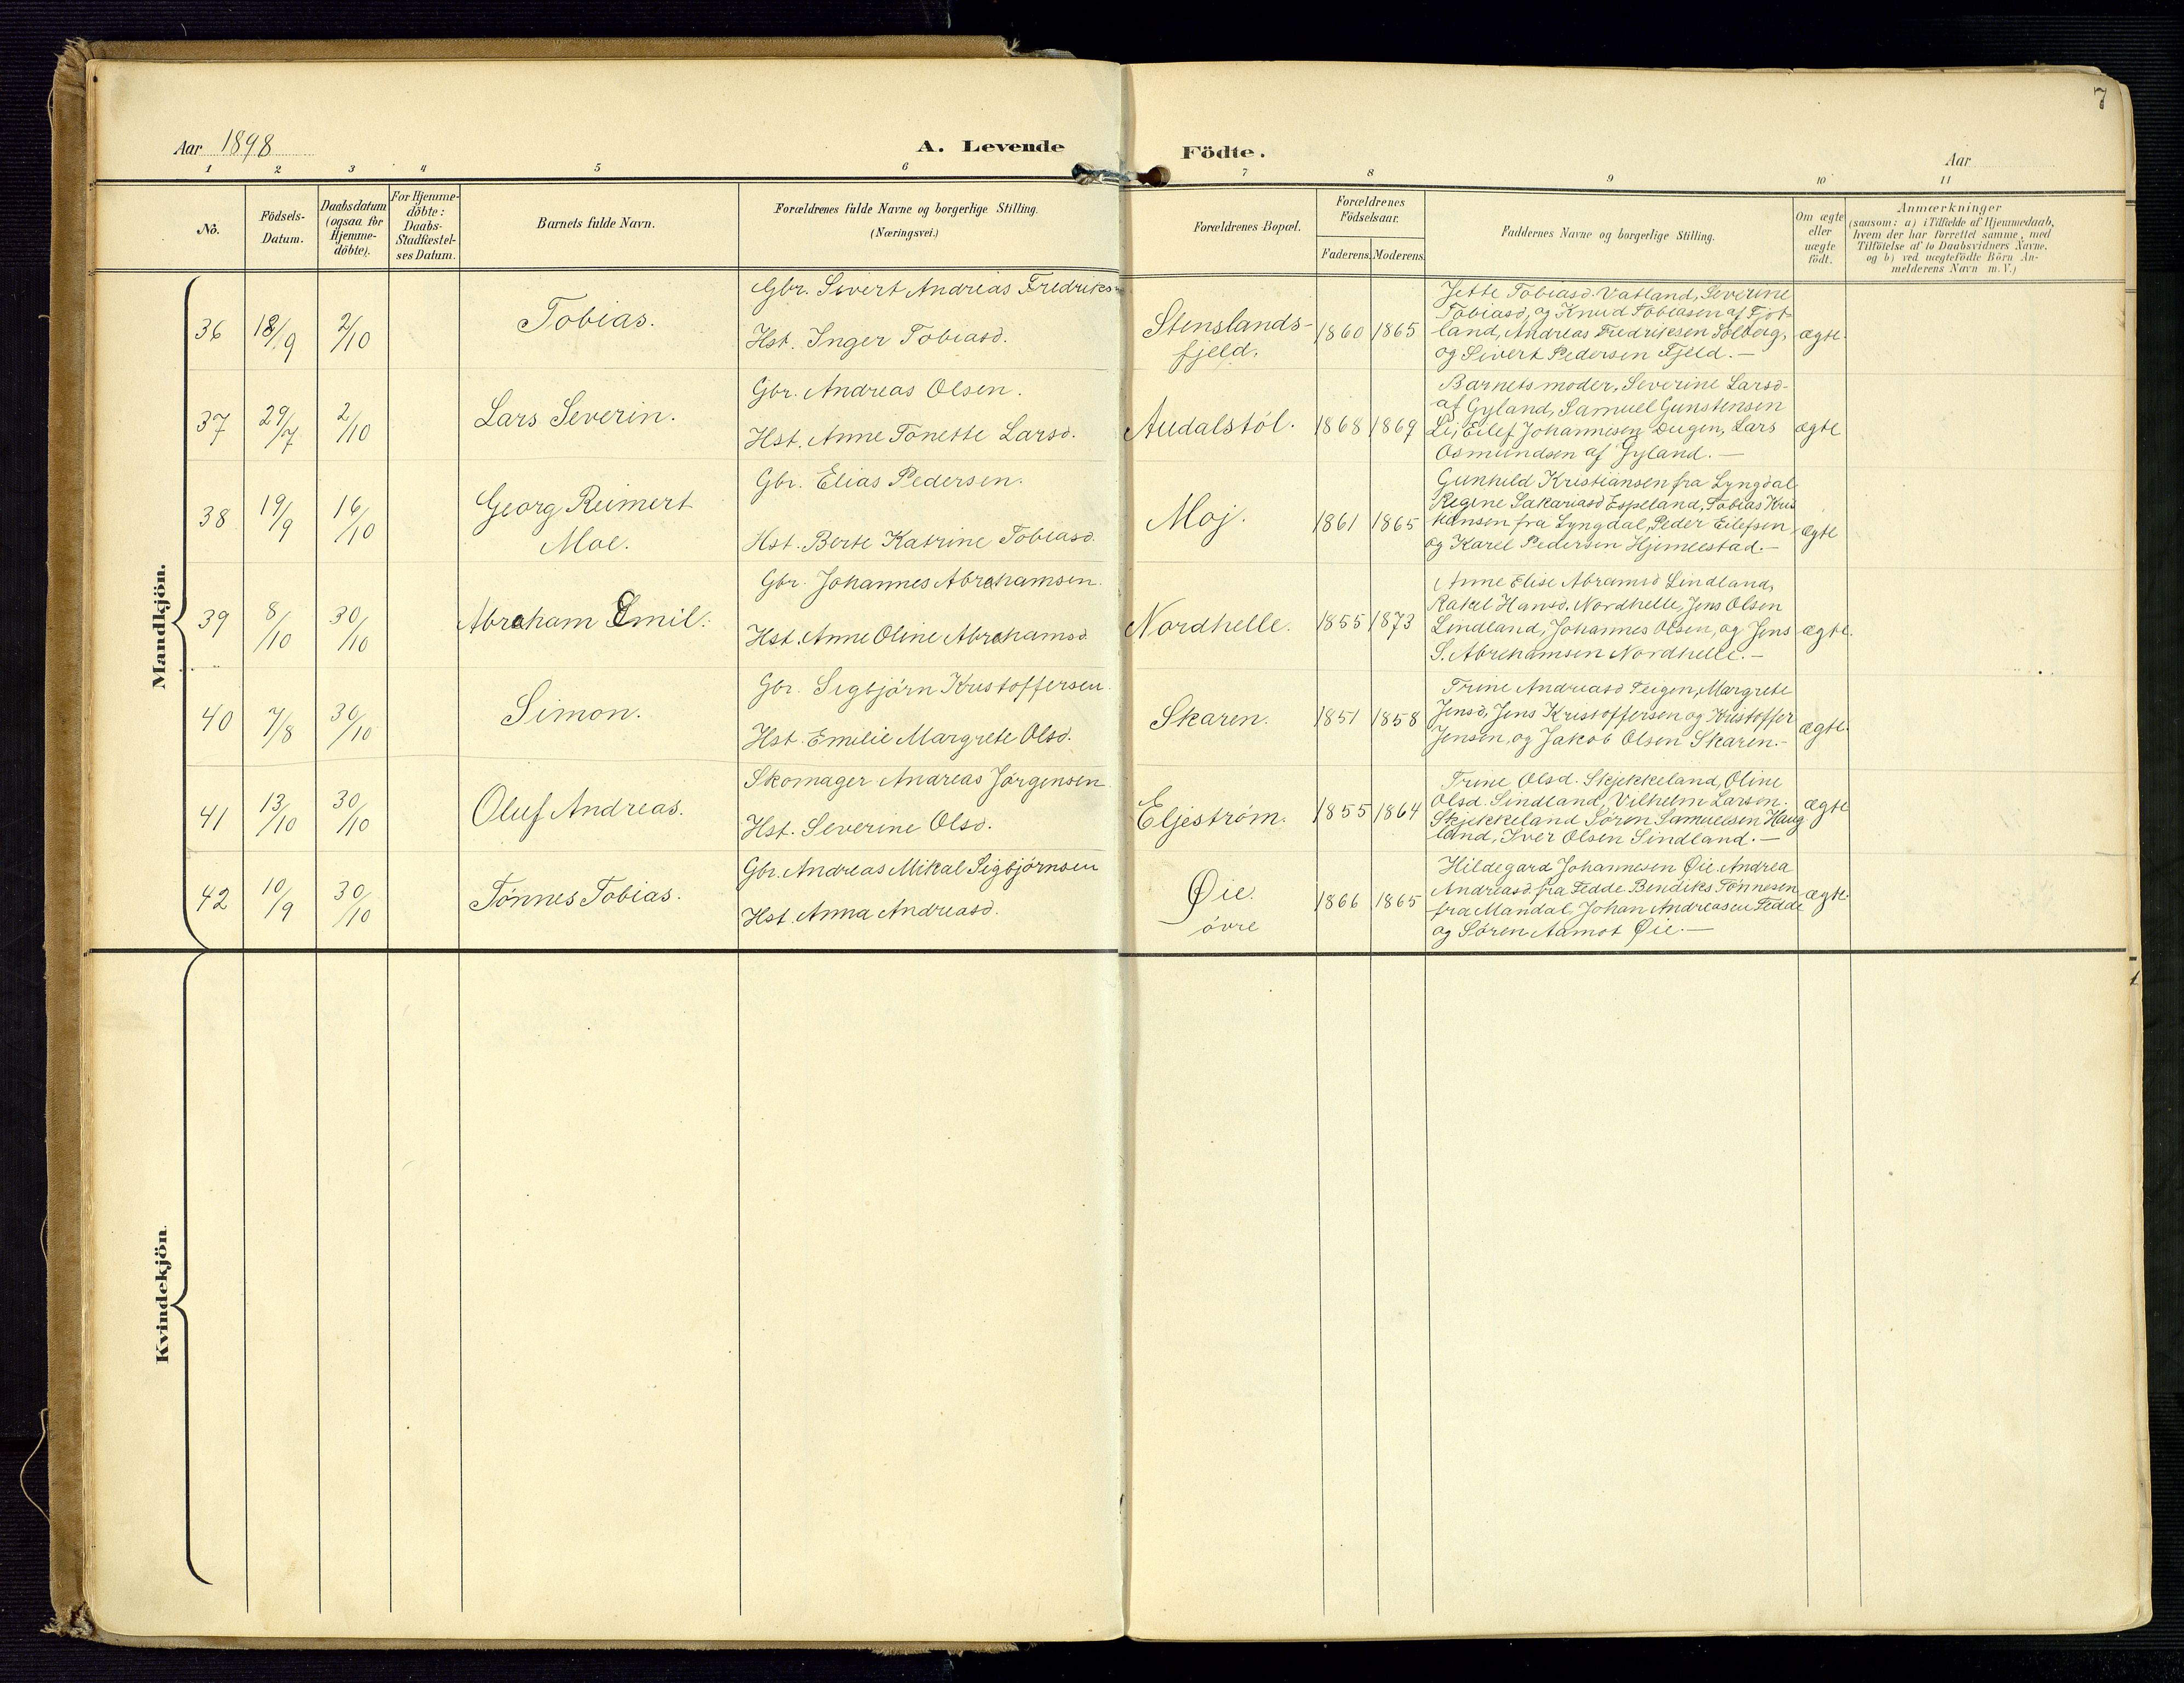 7
Aar 1898
A. Levende Födte.
Aar
1 2 3 4 5 6 7 8 9 10 11
No.
Födsels-Datum.
Daabsdatum (ogsaa for Hjemme-döbte).
For Hjemme-döbte: Daabs-Stadfæstel-ses Datum.
Barnets fulde Navn.
Forældrenes fulde Navne og borgerlige Stilling.
(Næringsvei.)
Forældrenes Bopæl.
Forældrenes Födselsaar.
Faderens. Moderens.
Faddernes Navne og borgerlige Stilling.
Om ægte eller uægte födt.
Anmærkninger
(saasom: a) i Tilfælde af Hjemmedaab,
hvem der har forrettet samme, med
Tilföielse af to Daabsvidners Navne,
og b) ved uægtefödte Börn An-
melderens Navn m. V.)
Mandkjön.
36 18/9 2/10 Tobias.
Gbr. Sivert Andreas Fredriks
Hst. Inger Tobiasd.
Stenslands-
fjeld.
1860 1865
Jette Tobiasd. Vatland, Severine
Tobiasd, og Knud Tobiasen af Fjot-
land, Andreas Fredriksen Solberg,
og Sivert Pedersen Fjeld. —
ægte.
37 29/7 2/10 Lars Severin.
Gbr. Andreas Olsen.
Hst. Anne Tonette Larsd.
Audalstöl.
1868 1869
Barnets moder, Severine Larsd-
af Gyland, Samuel Gunstensen
Li, Eilef Johannesen Dugen, Lars
Osmundsen af Gyland. —
ægte
38 19/9 16/10 Georg Reimert
Moe.
Gbr. Elias Pedersen.
Hst. Berte Katrine Tobiasd.
Moj.
1861 1865
Gunhild Kristiansen fra Lyngdal
Regine Sakariasd Espeland, Tobias Kris
tiansen fra Lyngdal, Peder Eilefsen
og Karel Pedersen Hjemlestad. —
ægte
39 8/10 30/10 Abraham Emil.
Gbr. Johannes Abrahamsen.
Hst. Anne Oline Abrahamsd
Nordhelle.
1855 1873
Anne Elise Abramsd Lindland,
Rakel Hansd. Nordhelle, Jens Olsen
Lindland, Johannes Olsen, og Jens
S. Abrehamsen Nordhelle. —
ægte.
40 7/8 30/10 Simon.
Gbr. Sigbjørn Kristoffersen.
Hst. Emilie Margrete Olsd.
Skaren.
1851 1858
Trine Andreasd Feigen, Margrete
Jensd, Jens Kristoffersen og Kristoffer
Jensen, og Jakob Olsen Skaren. —
ægte.
41 13/10 30/10 Oluf Andreas.
Skomager Andreas Jørgensen
Hst. Severine Olsd.
Eljestrøm.
1855 1864
Trine Olsd. Skjekkeland, Oline
Olsd. Sindland, Vilhelm Larsen
Skjekkeland Søren Samuelsen Haug
land, Iver Olsen Sindland. —
ægte
42 10/9 30/10 Tønnes Tobias.
Gbr. Andreas Mikal Sigbjørnsen
Hst. Anna Andreasd.
Øie.
øvre
1866 1865
Hildegard Johannesen Øie. Andrea
Andreasd. fra Fedde Bendiks Tønnesen
fra Mandal, Johan Andreasen Fedde
og Søren Aamot Øie. —
ægte.
Kvindekjön.